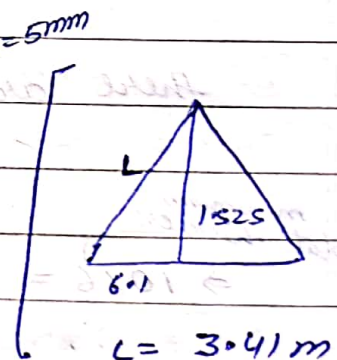 =5mm
L
1.525
6.1
L= 3.41 m